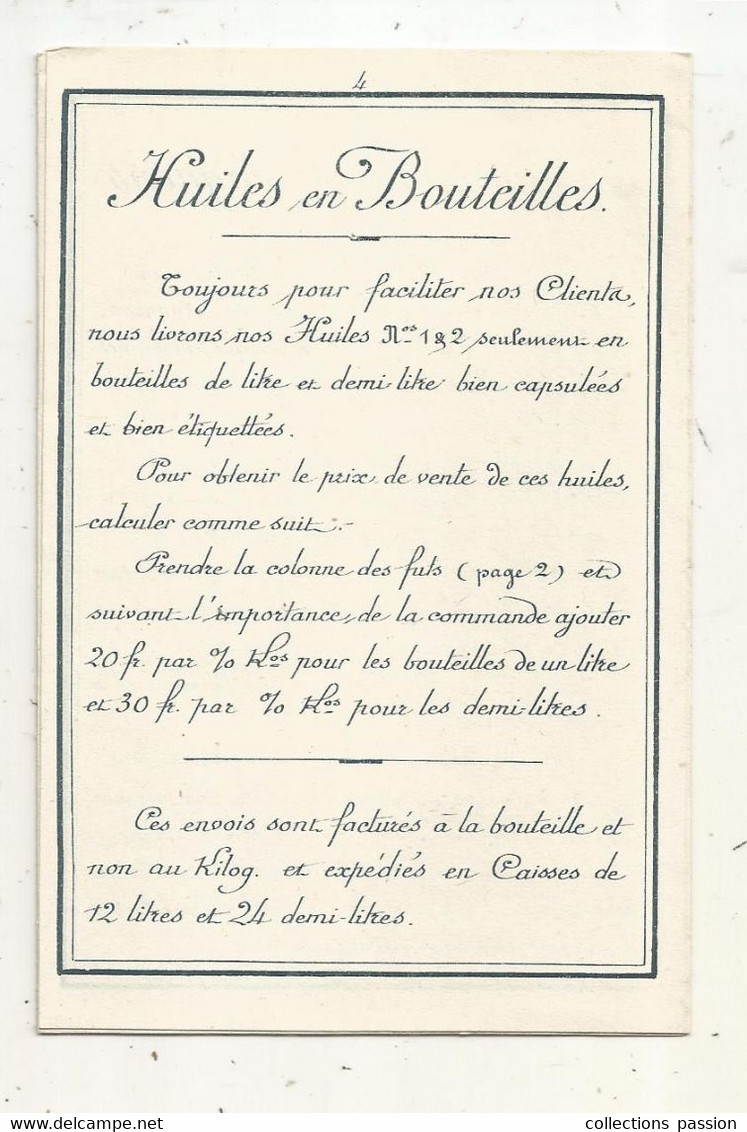 4
Huiles en Bouteilles.
Toujours pour faciliter nos Clients,
nous livrons nos Huiles Nos 1 & 2 seulement en
bouteilles de litre et demi-litre bien capsulées
et bien étiquettées.
Pour obtenir le prix de vente de ces huiles,
calculer comme suit.-
Prendre la colonne des futs (page 2) et
suivant l'importance de la commande ajouter
20 fr. par % Kos pour les bouteilles de un litre
et 30 fr. par % Kos pour les demi-litres.
Ces envois sont facturés à la bouteille et
non au Kilog. et expédiés en Caisses de
12 litres et 24 demi-litres.
collections passion